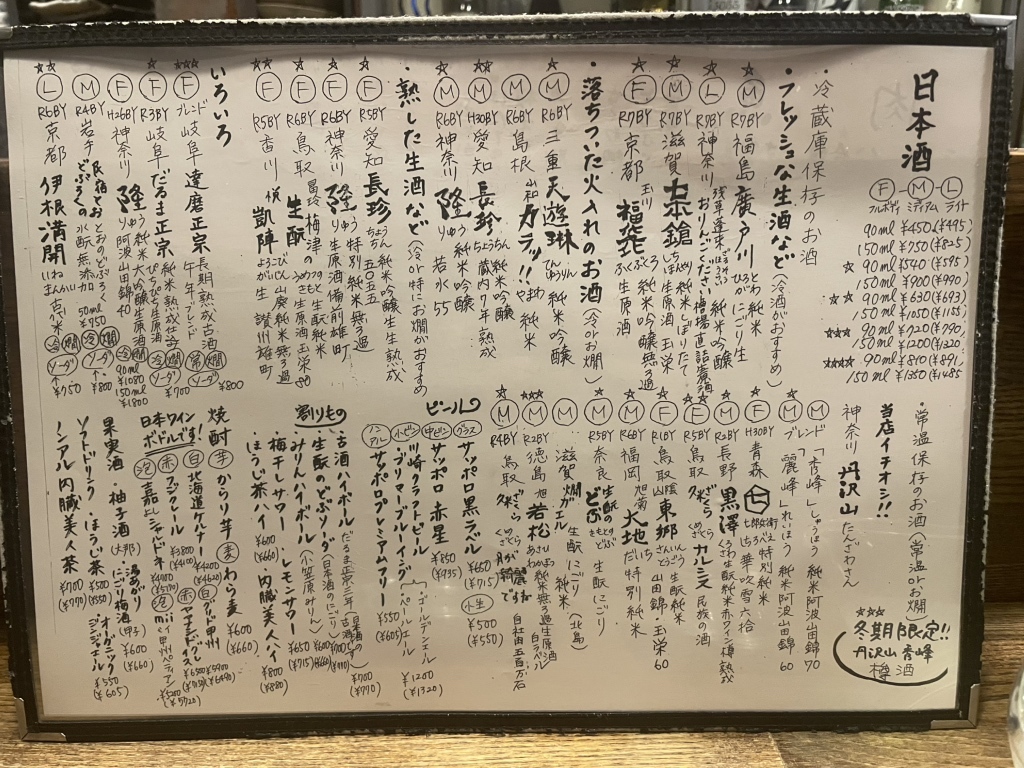 日本酒
Ⓕ-Ⓜ-Ⓛ
フルボディ ミディアム ライト
90ml ¥450(¥495)
150ml ¥750(¥825)
☆ 90ml ¥540(¥595)
150ml ¥900(¥990)
☆☆ 90ml ¥630(¥693)
150ml ¥1050(¥1155)
☆☆☆ 90ml ¥720(¥790)
150ml ¥1200(¥1320)
☆☆☆☆ 90ml ¥810(¥891)
150ml ¥1350(¥1485)
・冷蔵庫保存のお酒
・フレッシュな生酒など(冷酒がおすすめ)
☆ Ⓜ R7BY 福島 廣戸川 ひろとがわ にごり生
☆ Ⓛ R7BY 神奈川 浅草蓬来のほまれ おりんごください 純米吟醸 槽場直詰無濾過
☆ Ⓜ R7BY 滋賀 七本鎗 しちほんやり 純米しぼりたて生原酒 玉栄
☆ Ⓕ R7BY 京都 玉川 福袋 ふくぶくろ 純米吟醸無ろ過生原酒
・落ちついた火入れのお酒(冷or お燗)
☆ Ⓜ R6BY 三重 天遊琳 てんゆうりん 純米吟醸
Ⓜ R6BY 島根 山和 カラッ!! 純米
☆☆ Ⓜ H30BY 愛知 長珍 ちょうちん 純米吟醸 蔵内7年熟成
☆ Ⓜ R6BY 神奈川 隆 りゅう 純米吟醸 若水55
・熟した生酒など(冷or特にお燗がおすすめ)
☆ Ⓕ R5BY 愛知 長珍 ちょうちん 5055 純米吟醸生生熟成
Ⓕ R6BY 神奈川 隆 りゅう 特別純米無ろ過生原酒 備前雄町
Ⓕ R6BY 鳥取 冨玲 梅津の生酛 生酛純米生原酒 玉栄80
☆☆ Ⓕ R5BY 香川 悦 凱陣 よろこびがいじん 山廃純米無ろ過生 讃州雄町
いろいろ
☆☆☆ Ⓕ ブレンド 岐阜 達磨正宗 長期熟成古酒 午年ブレンド 常 燗 ソーダ ¥800
☆ Ⓕ R3BY 岐阜 だるま正宗 純米 熟成仕込 冷 燗 ソーダ ¥700
Ⓕ H26BY 神奈川 隆 りゅう 純米大吟醸生原酒 阿波山田錦40 冷 燗 90ml ¥1080 150ml ¥1800
Ⓜ R4BY 岩手 民宿とおの どぶろくの水酛 無添加 50ml ¥750 冷 燗 ソーダ ¥800
☆☆ Ⓛ R6BY 京都 伊根満開 いねまんかい 古代米 冷 燗 ソーダ ¥750
・常温保存のお酒(常温orお燗)
当店イチオシ!!
神奈川 丹沢山 たんざわさん
☆☆☆
冬期限定!!
丹沢山 秀峰
樽酒
Ⓜ 「秀峰」しゅうほう 純米 阿波山田錦70
☆ Ⓜ ブレンド 「麗峰」れいほう 純米 阿波山田錦60
Ⓕ H30BY 青森 特別純米 華吹雪 六拾
Ⓜ R2BY 長野 黒澤 くろさわ 生酛純米 赤ワイン樽熟
☆ Ⓕ R5BY 鳥取 久米ざくら カルミネ 民族の酒
☆ Ⓕ R1BY 鳥取 山陰東郷 生酛純米 山田錦・玉栄60
Ⓜ R6BY 福岡 旭菊 大地 だいち 特別純米
Ⓜ R5BY 奈良 生酛のどぶ きもとのどぶ 生酛 にごり
Ⓜ 滋賀 燗ガエル 生酛 純米 にごり(北島)
☆☆☆ Ⓜ R2BY 徳島 旭若松 あさひわかまつ 純米無ろ過生原酒 白ラベル
☆ Ⓜ R4BY 鳥取 久米ざくら 月が綺麗ですね 自社田五百万石
ビール
グラス サッポロ黒ラベル ¥650(¥715) 小生 ¥500(¥550)
中ビン サッポロ赤星 ¥850(¥935)
小ビン 川崎クラフトビール
・ブリマーブルーイング「ゴールデンエール」「ペールエール」 ¥1200(¥1320)
ノンアル サッポロプレミアムフリー ¥550(¥605)
割りもの
・古酒ハイボール(だるま正宗三年古酒) ¥700(¥770)
・生酛のどぶソーダ(日本酒のにごり)
・みりんハイボール(小笠原みりん)
・梅干しサワー ・レモンサワー ¥650(¥715)
・ほうじ茶ハイ ¥600(¥660) ・内臓美人ハイ ¥800(¥880)
焼酎 芋 からり芋 麦 わら麦 ¥600(¥660)
日本ワイン
ボトルです!
白 北海道ケルナー ¥4200(¥4620) 白 グッド甲州
赤 アジロンール ¥3800
泡 嘉 よし シャルドネ
泡 mii
果実酒
・柚子酒(大那) ・湯あがり にごり梅酒(甲子) ¥600(¥660)
ソフトドリンク・ほうじ茶 ¥500(¥550) ・オーガニックジンジャエール ¥550(¥605)
ノンアル内臓美人茶 ¥700(¥770)